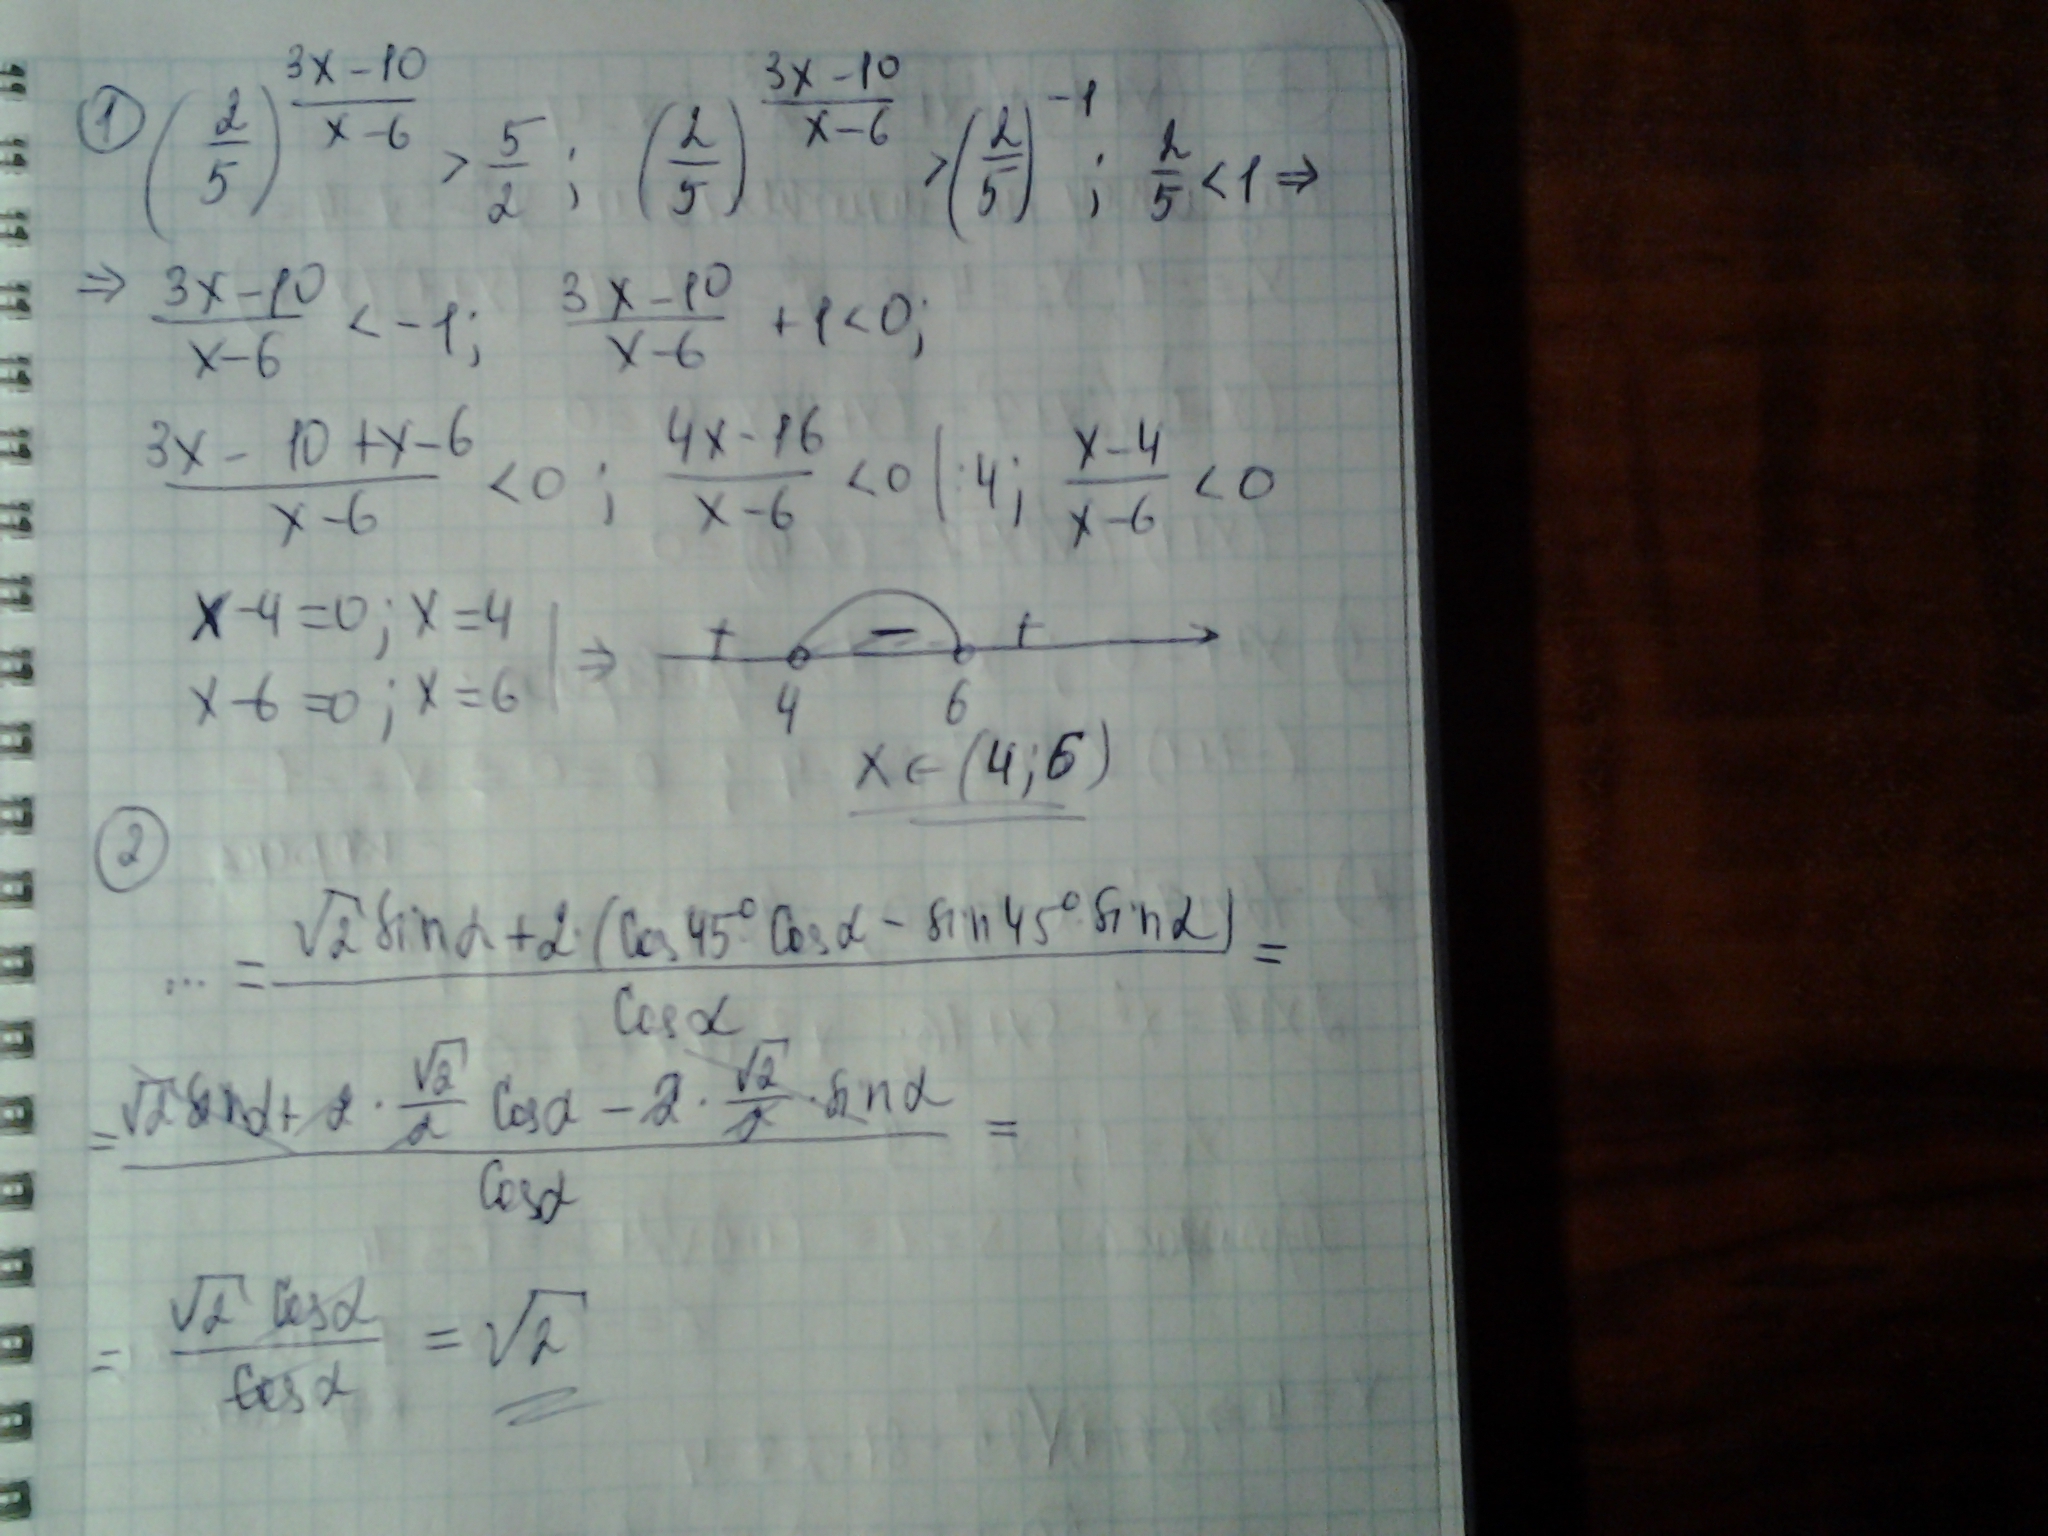 ① (2/5)^((3x-10)/(x-6)) > 5/2 ; (2/5)^((3x-10)/(x-6)) > (2/5)^(-1) ; 2/5 < 1 ⇒
⇒ (3x-10)/(x-6) < -1; (3x-10)/(x-6) + 1 < 0;
(3x - 10 + x - 6)/(x-6) < 0 ; (4x-16)/(x-6) < 0 | :4; (x-4)/(x-6) < 0
x-4=0; x=4
x-6=0; x=6 | ⇒ + - +
4 6
x ∈ (4;6)
②
... = (√2 sinα + 2·(cos45°·cosα - sin45°·sinα))/cosα =
= (√2 sinα + 2 · √2/2 cosα - 2 · √2/2 · sinα)/cosα =
= (√2 cosα)/cosα = √2